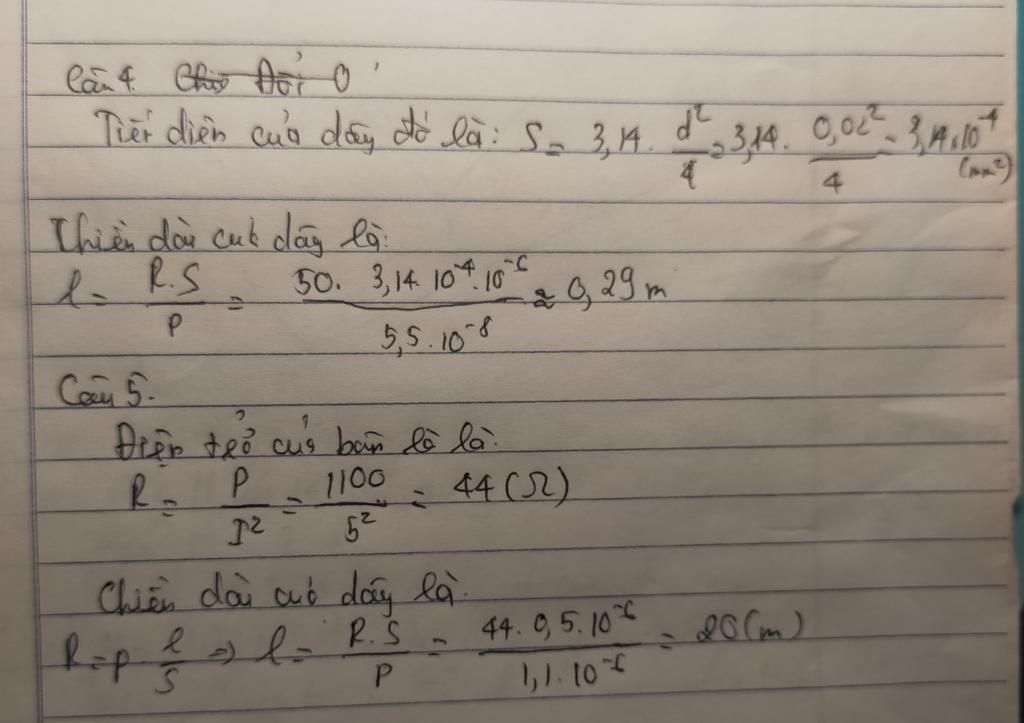 Câu 4. Cho Đổi 0
Tiết diện của dây đó là: S = 3,14 . d²/4 = 3,14 . 0,02²/4 = 3,14.10⁻⁴ (mm²)
Chiều dài của dây là:
l = R.S/ρ = 50. 3,14.10⁻⁴.10⁻⁶/5,5.10⁻⁸ ≈ 0,29 m
Câu 5.
Điện trở của bàn là là:
R = P/I² = 1100/5² = 44 (Ω)
Chiều dài của dây là.
R = ρ l/S ⇒ l = R.S/ρ = 44. 0,5.10⁻⁶/1,1.10⁻⁶ = 20 (m)